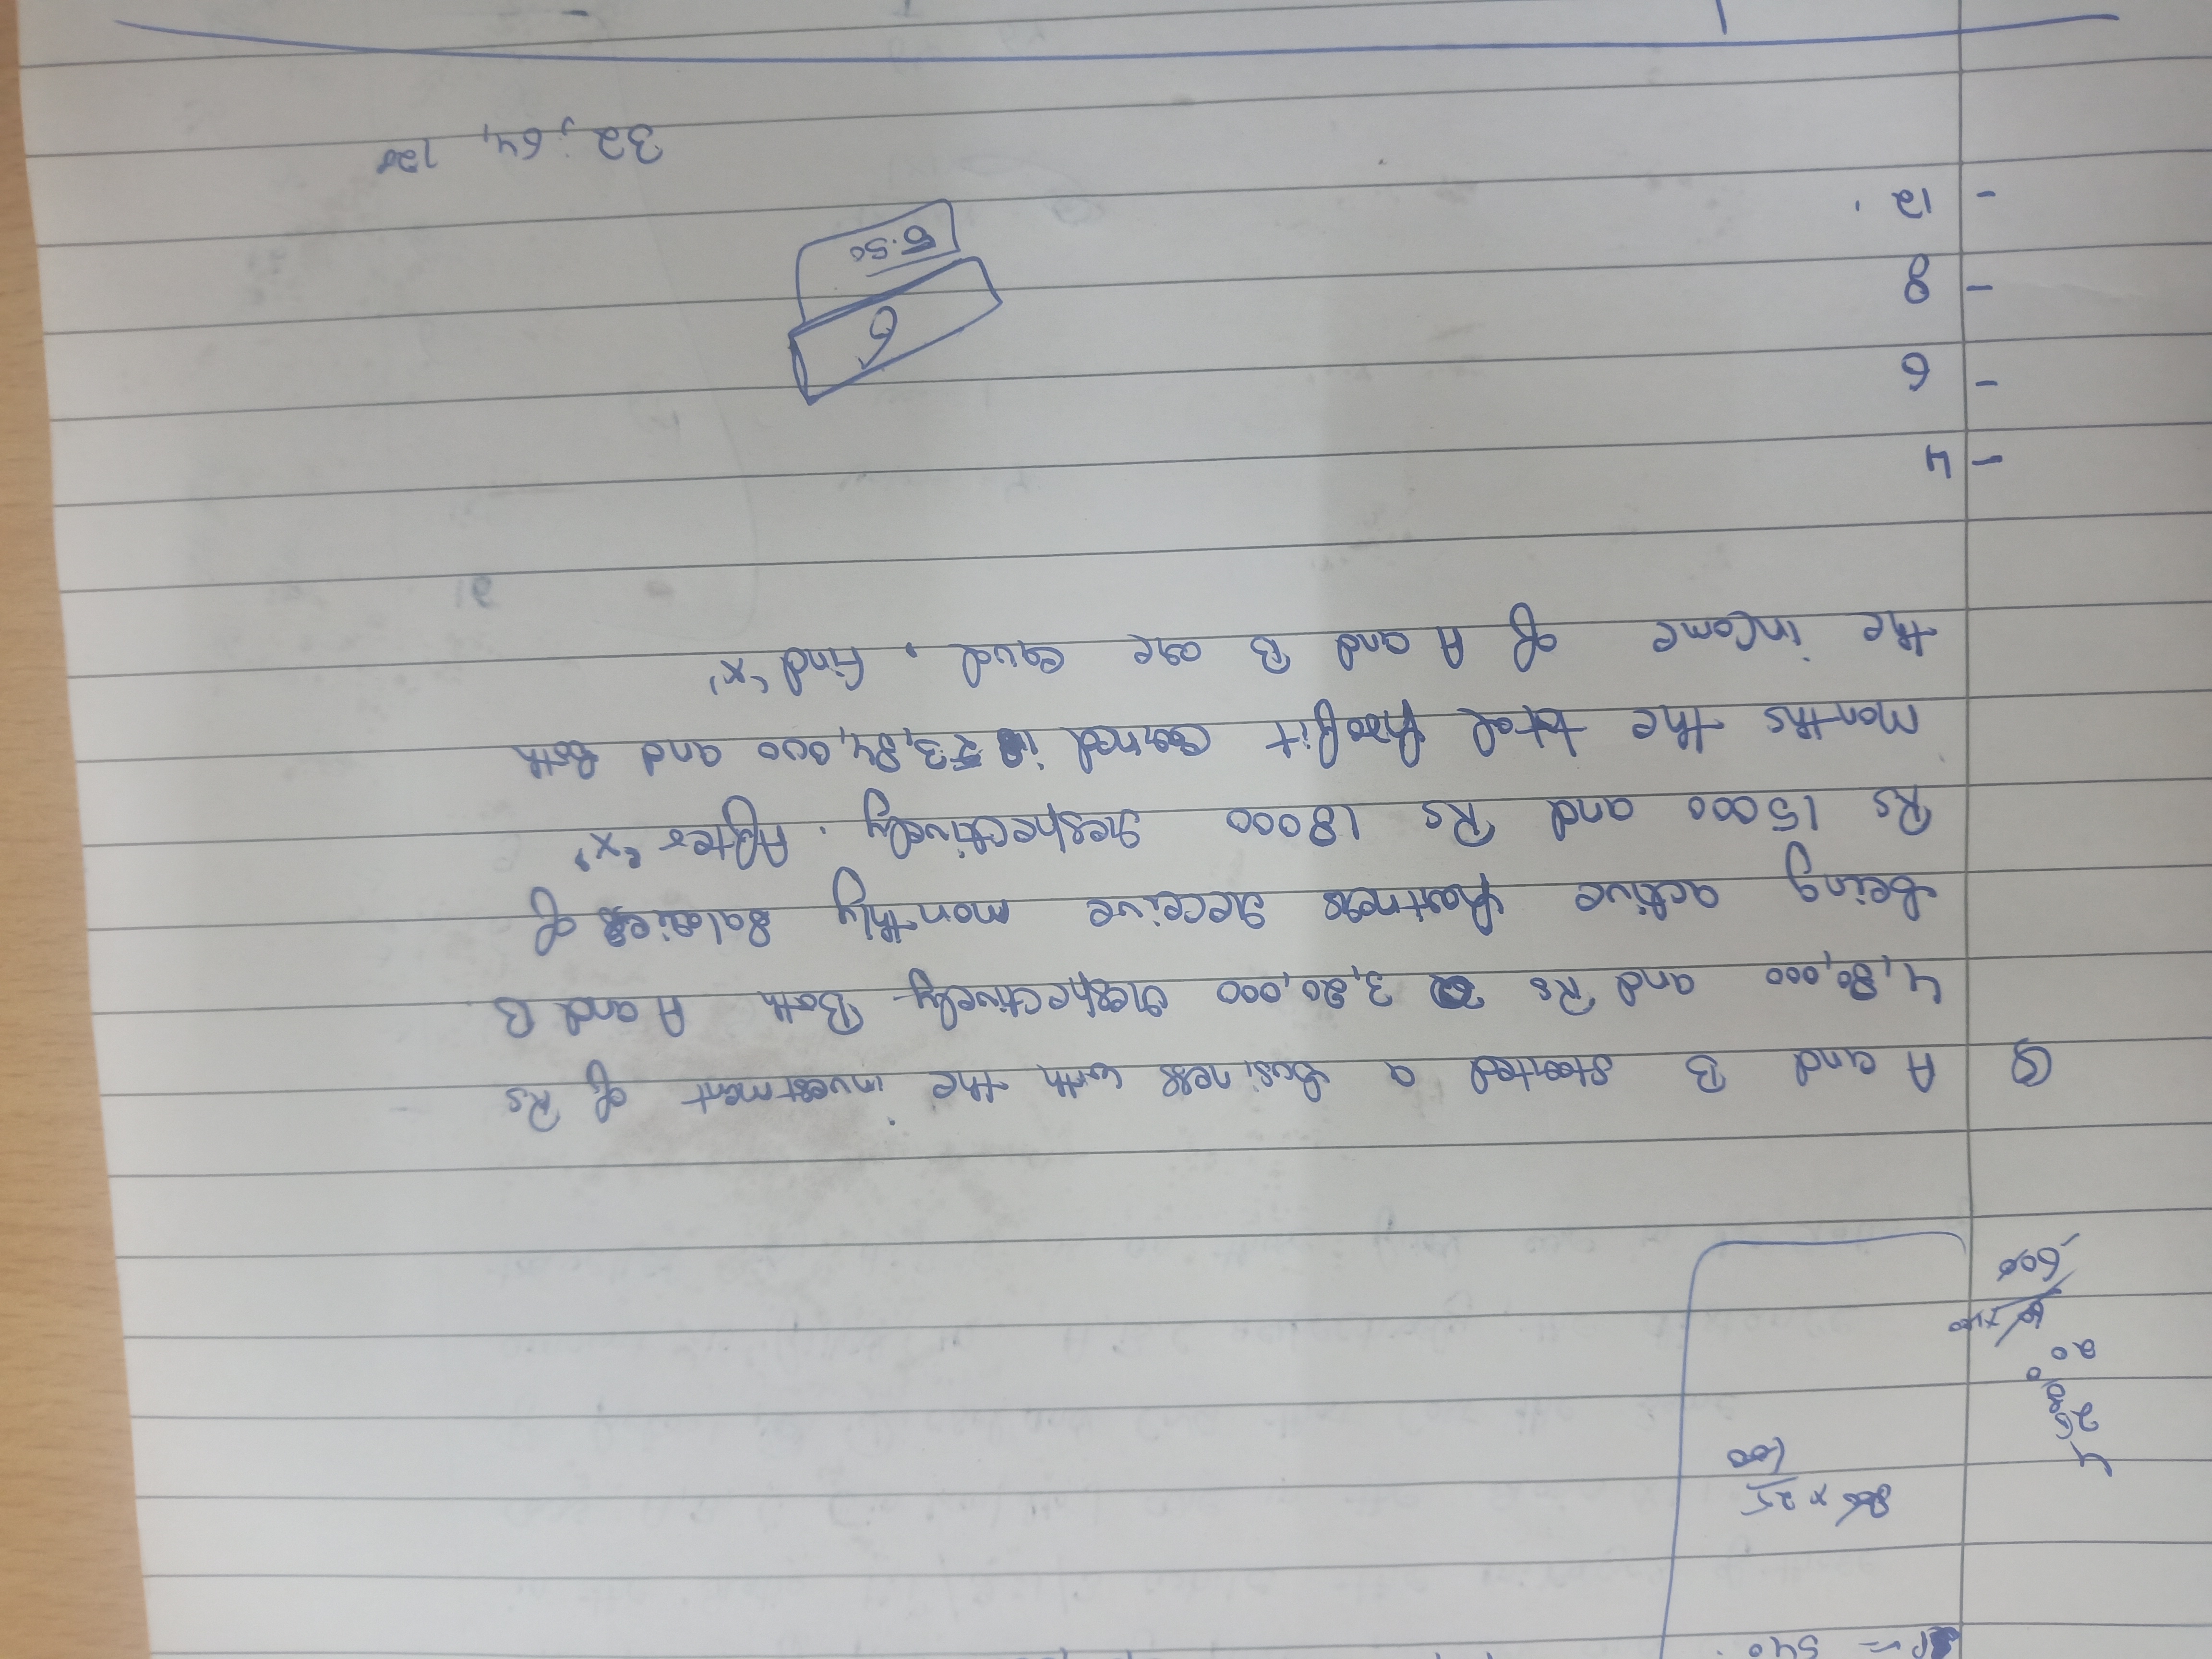 SP = 540.
800 x 25
100
4
25
8
20
60 x 100
600
Q A and B started a business with the investment of Rs
4,80,000 and Rs 3,20,000 respectively. Both A and B
being active partners receive monthly salaries of
Rs 15000 and Rs 18000 respectively. After 'x'
months the total profit earned is ₹3,84,000 and both
the income of A and B are equal, find 'x'
- 4
- 6
- 8
- 12.
6
5.50
32, 64, 128